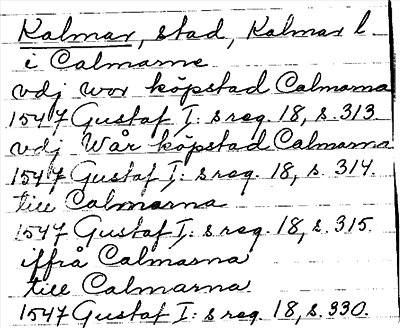 Kalmar, stad, Kalmar l
i Calmarne
vdj wor köpstad Calmarna
1547 Gustaf I:s reg. 18, s. 313.
vdj Wår köpstad Calmarna
1547 Gustaf I:s reg. 18, s. 314.
till Calmarna
1547 Gustaf I:s reg. 18, s. 315.
iffrå Calmarna
till Calmarna
1547 Gustaf I:s reg. 18, s. 330.